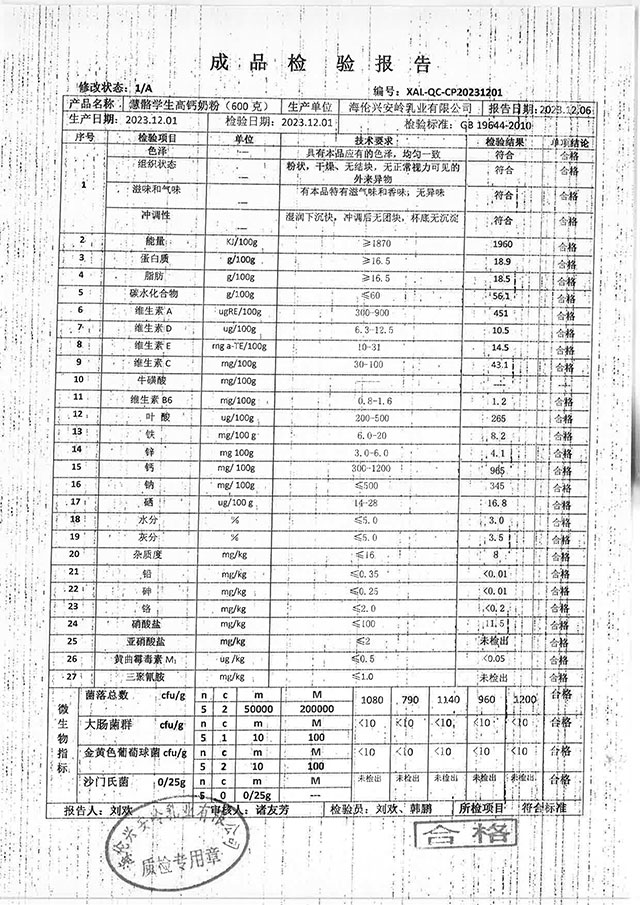 成品检验报告
修改状态：1/A 编号：XAL-QC-CP20231201
产品名称 慧骼学生高钙奶粉（600 克） 生产单位 海伦兴安岭乳业有限公司 报告日期：2023.12.06
生产日期：2023.12.01 检验日期：2023.12.01 检验标准：GB 19644-2010
序号 检验项目 单位 技术要求 检验结果 单项结论
1 色泽 — 具有本品应有的色泽，均匀一致 符合 合格
组织状态 — 粉状，干燥、无结块，无正常视力可见的外来异物 符合 合格
滋味和气味 — 有本品特有滋气味和香味，无异味 符合 合格
冲调性 — 湿润下沉快，冲调后无团块，杯底无沉淀 符合 合格
2 能量 KJ/100g ≥1870 1960 合格
3 蛋白质 g/100g ≥16.5 18.9 合格
4 脂肪 g/100g ≥16.5 18.5 合格
5 碳水化合物 g/100g ≤60 56.1 合格
6 维生素 A ugRE/100g 300-900 451 合格
7 维生素 D ug/100g 6.3-12.5 10.5 合格
8 维生素 E mg a-TE/100g 10-31 14.5 合格
9 维生素 C mg/100g 30-100 43.1 合格
10 牛磺酸 mg/100g
11 维生素 B6 mg/100g 0.8-1.6 1.2 合格
12 叶 酸 ug/100g 200-500 265 合格
13 铁 mg/100 g 6.0-20 8.2 合格
14 锌 mg 100g 3.0-6.0 4.1 合格
15 钙 mg/ 100g 300-1200 965 合格
16 钠 mg/ 100g ≤500 345 合格
17 硒 ug/100 g 14-28 16.8 合格
18 水分 % ≤5.0 3.0 合格
19 灰分 % ≤5.0 3.5 合格
20 杂质度 mg/kg ≤16 8 合格
21 铅 mg/kg ≤0.35 <0.01 合格
22 砷 mg/kg ≤0.25 <0.01 合格
23 铬 mg/kg ≤2.0 <0.2 合格
24 硝酸盐 mg/kg ≤100 11.5 合格
25 亚硝酸盐 mg/kg ≤2 未检出 合格
26 黄曲霉毒素 M₁ ug /kg ≤0.5 <0.05 合格
27 三聚氰胺 mg/kg ≤1.0 未检出 合格
微生物指标
菌落总数 cfu/g n c m M 1080 790 1140 960 1200 合格
5 2 50000 200000
大肠菌群 cfu/g n c m M <10 <10 <10 <10 <10 合格
5 1 10 100
金黄色葡萄球菌 cfu/g n c m M <10 <10 <10 <10 <10 合格
5 2 10 100
沙门氏菌 0/25g n c m M 未检出 未检出 未检出 未检出 未检出 合格
5 0 0/25g —
报告人：刘欢 审核人：诸友芳 检验员：刘欢、韩鹏 所检项目 符合标准
海伦兴安岭乳业有限公司
质检专用章
合格